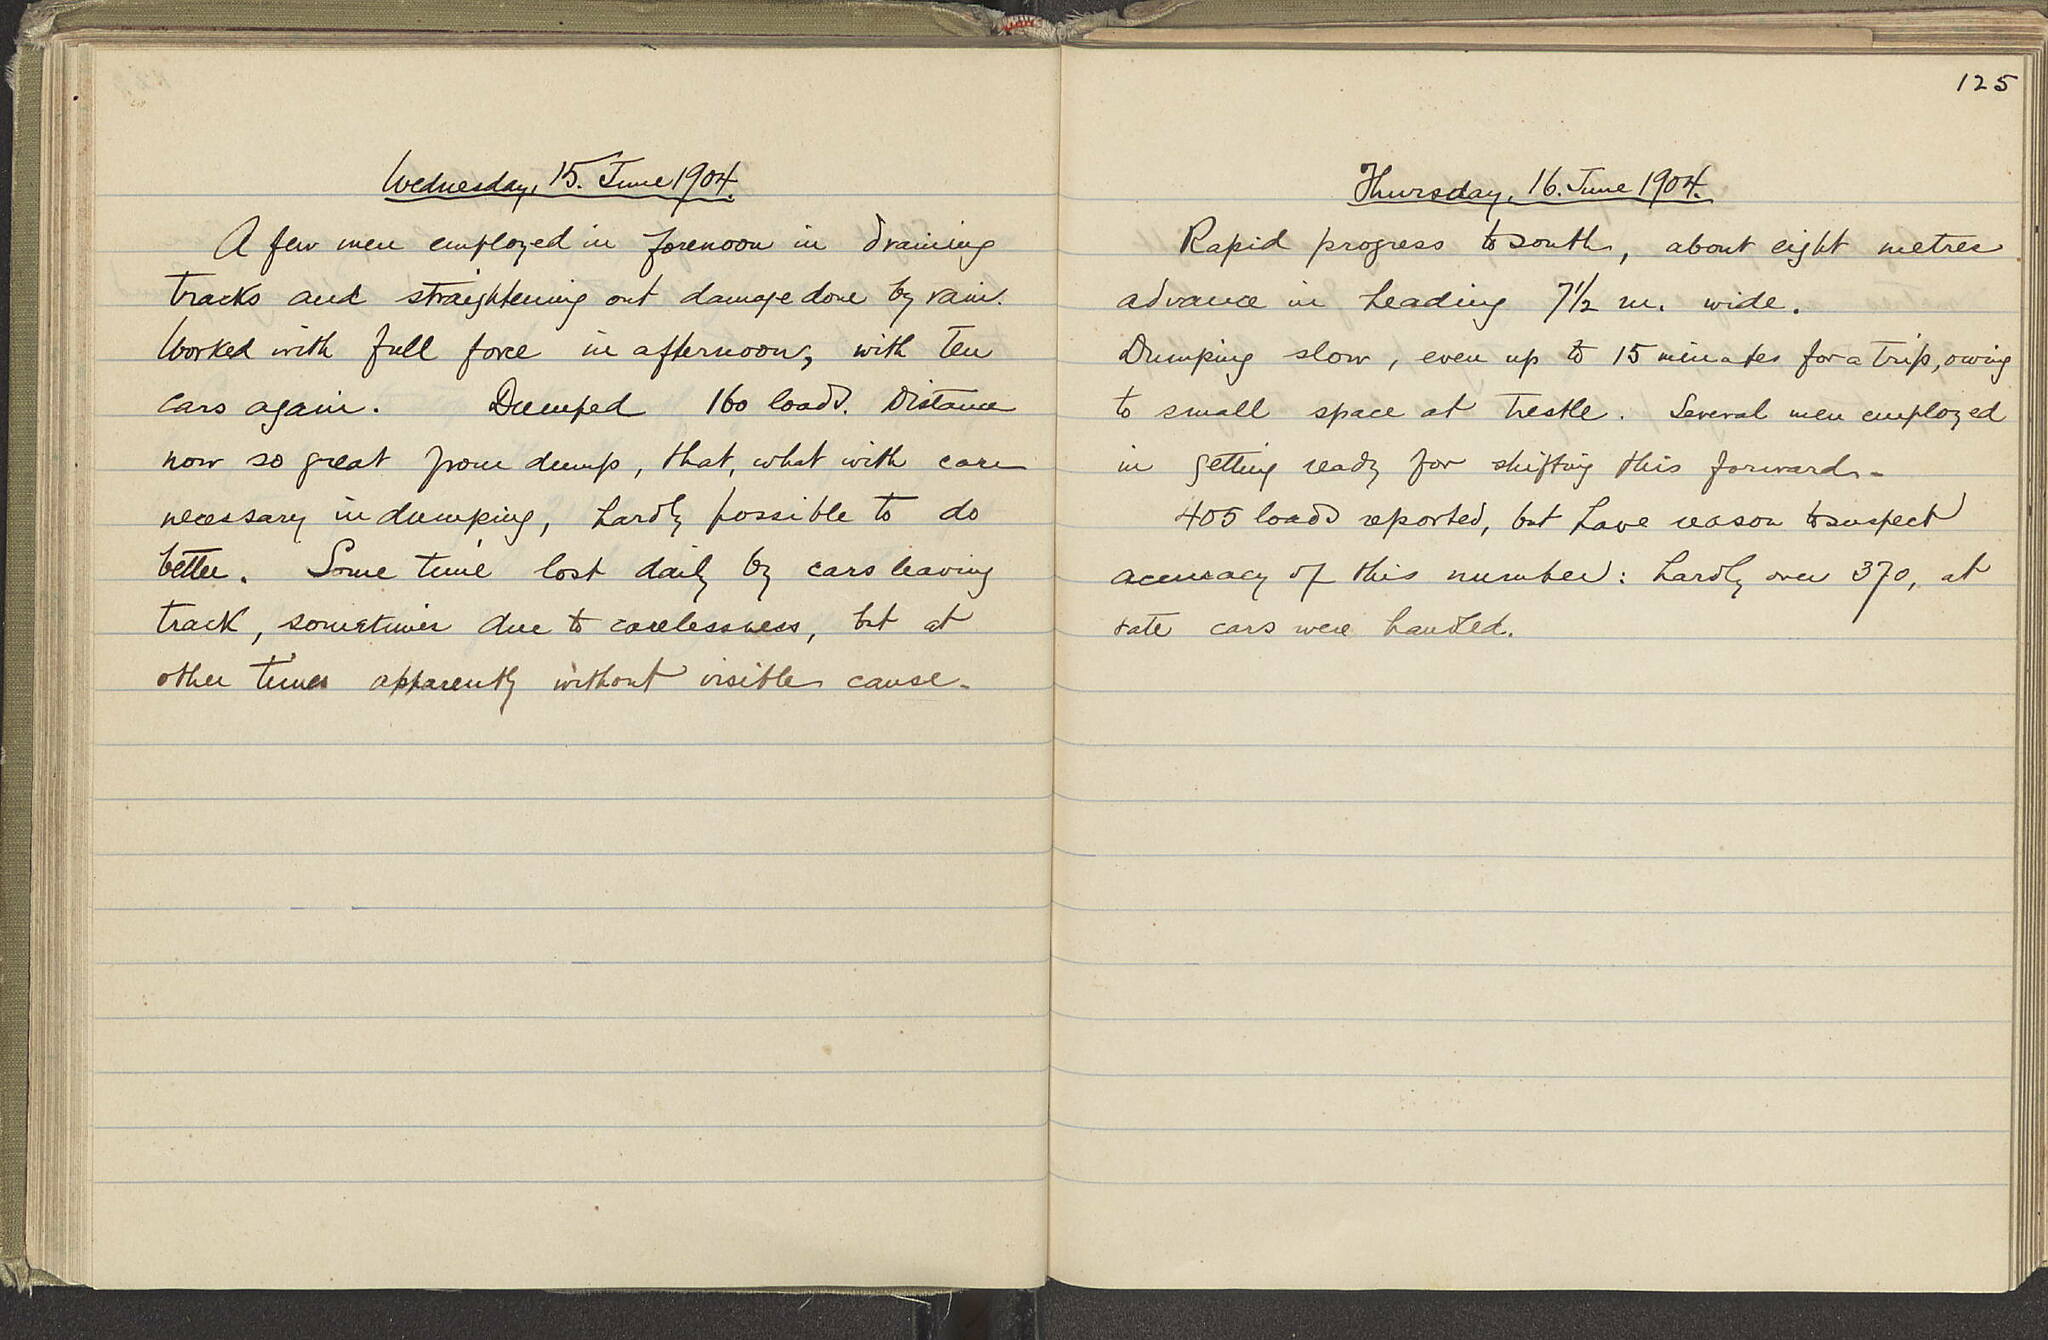 Wednesday, 15. June 1904.
A few men employed in forenoon in draining
tracks and straightening out damage done by rain.
Worked with full force in afternoon, with ten
cars again. Dumped 160 loads. Distance
now so great from dump, that, what with care
necessary in dumping, hardly possible to do
better. Some time lost daily by cars leaving
track, sometimes due to carelessness, but at
other times apparently without visible cause.
125
Thursday, 16. June 1904.
Rapid progress to south, about eight metres
advance in heading 7½ m. wide.
Dumping slow, even up to 15 minutes for a trip, owing
to small space at trestle. Several men employed
in getting ready for shifting this forward.
405 loads reported, but have reason to suspect
accuracy of this number: hardly over 370, at
rate cars were handled.